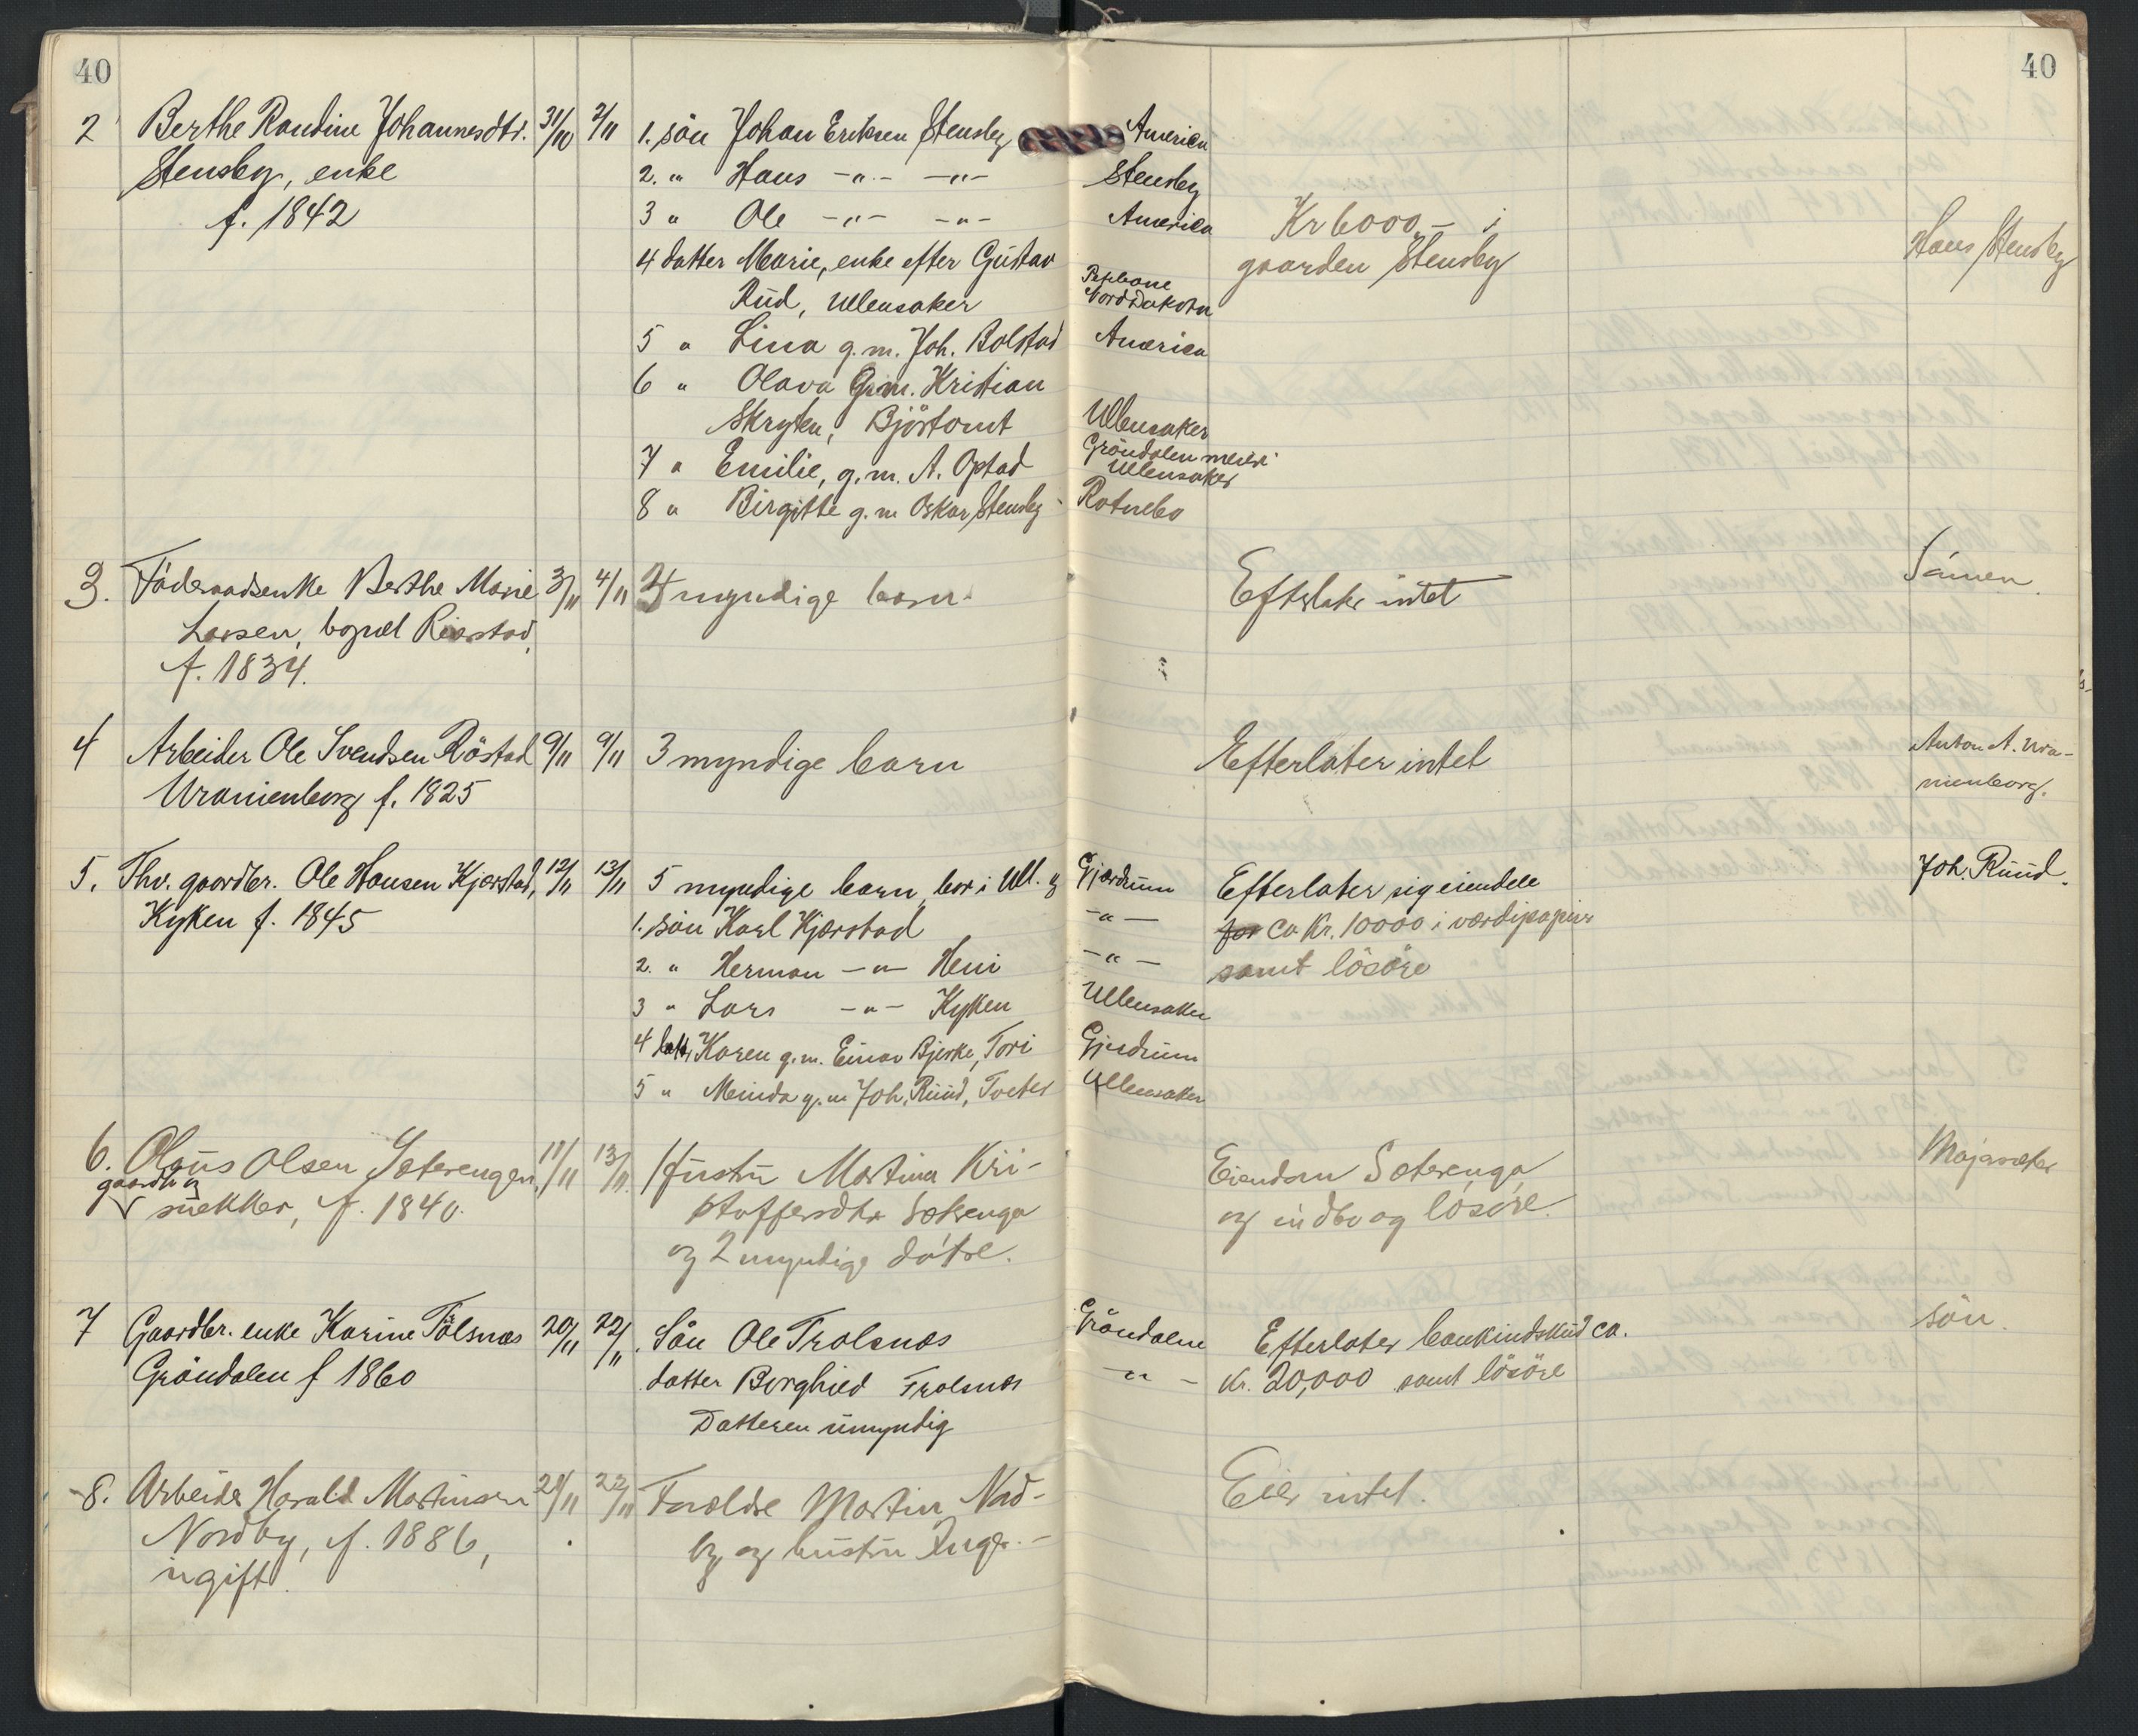 40
40
2 Berthe Randine Johannesdtr. 31/10 2/11 1. sön Johan Eriksen Stensby America
Stensby, enke 2. " Hans -"- -"- Stensby
f. 1842 3 " Ole -"- -"- America Kr 6000,- i Hans Stensby
4 datter Marie, enke efter Gustav gaarden Stensby
Rud, Ullensaker Norddakota
5 " Lina g.m. Joh. Bolstad America
6 " Olava g.m. Kristian
Skryken, Björtomt Ullensaker
7 " Emilie, g.m. A. Opstad Gröndalen meieri Ullensaker
8 " Birgitte g.m Oskar Stensby Rotnebo
3. Föderaadsenke Berthe Marie 3/11 4/11 4 myndige barn. Efterlater intet Sönnen
Larsen, bopæl
f. 1834.
4 Arbeider Ole Svendsen Röstad 9/11 9/11 3 myndige barn Efterlater intet Anton A. Ura-
Uranienborg f. 1825 nienborg.
5. Fhv. gaardbr. Ole Hansen Kjærstad, 12/11 13/11 5 myndige barn, bor i Ull. og Gjærdrum Efterlater sig eiendele Joh. Ruud.
Kyken f. 1845 1. sön Karl Kjærstad -"- for ca Kr. 10000 i værdipapirer
2. " Herman -"- Heni -"- samt lösöre
3 " Lars -"- Kyken Ullensaker
4 datt. Karen g.m. Einar Bjerke, Tori Gjerdrum
5 " Meinda g.m Joh. Ruud, Toeter Ullensaker
6. Olaus Olsen Sæterengen, 11/11 13/11 Hustru Martina Kri- Eiendom Sæterenga Majasæter
gaardbr og snekker, f. 1840. stoffersdtr Sæterenga og indbo og lösöre.
og 2 myndige døtre.
7 Gaardbr. enke Karine Tölsnæs 20/11 22/11 Sön Ole Trolsnæs Gröndalen Efterlater bankindskud ca. sön.
Gröndalen f 1860 datter Borghild Trolsnæs -"- Kr. 20,000 samt lösöre
Datteren umyndig
8. Arbeider Harald Martinsen 21/11 22/11 Forældre Martin Nord- Eier intet.
Nordby, f. 1886, by og hustru Inga. -
ugift.